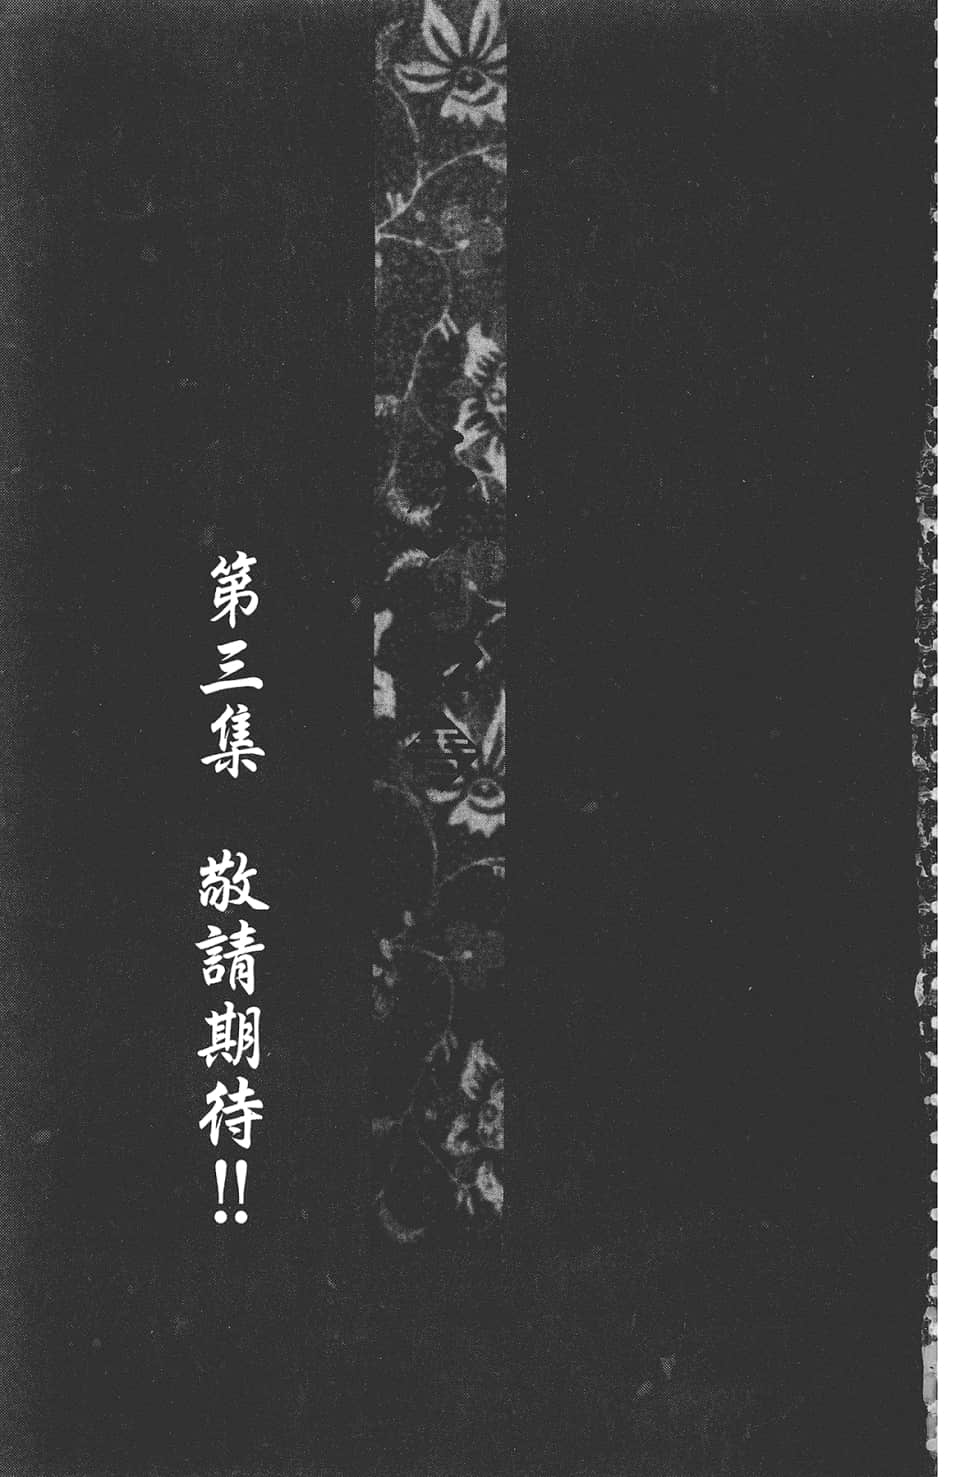 第三集　敬請期待!!